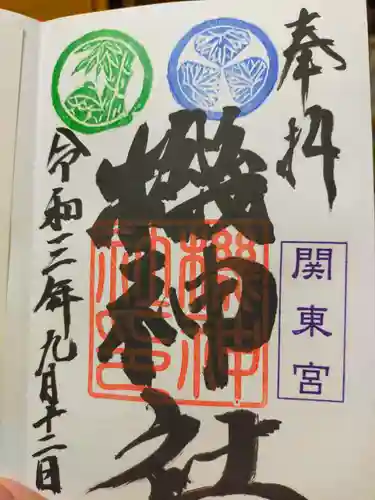 奉拝
関東宮
機神社
令和三年九月十二日